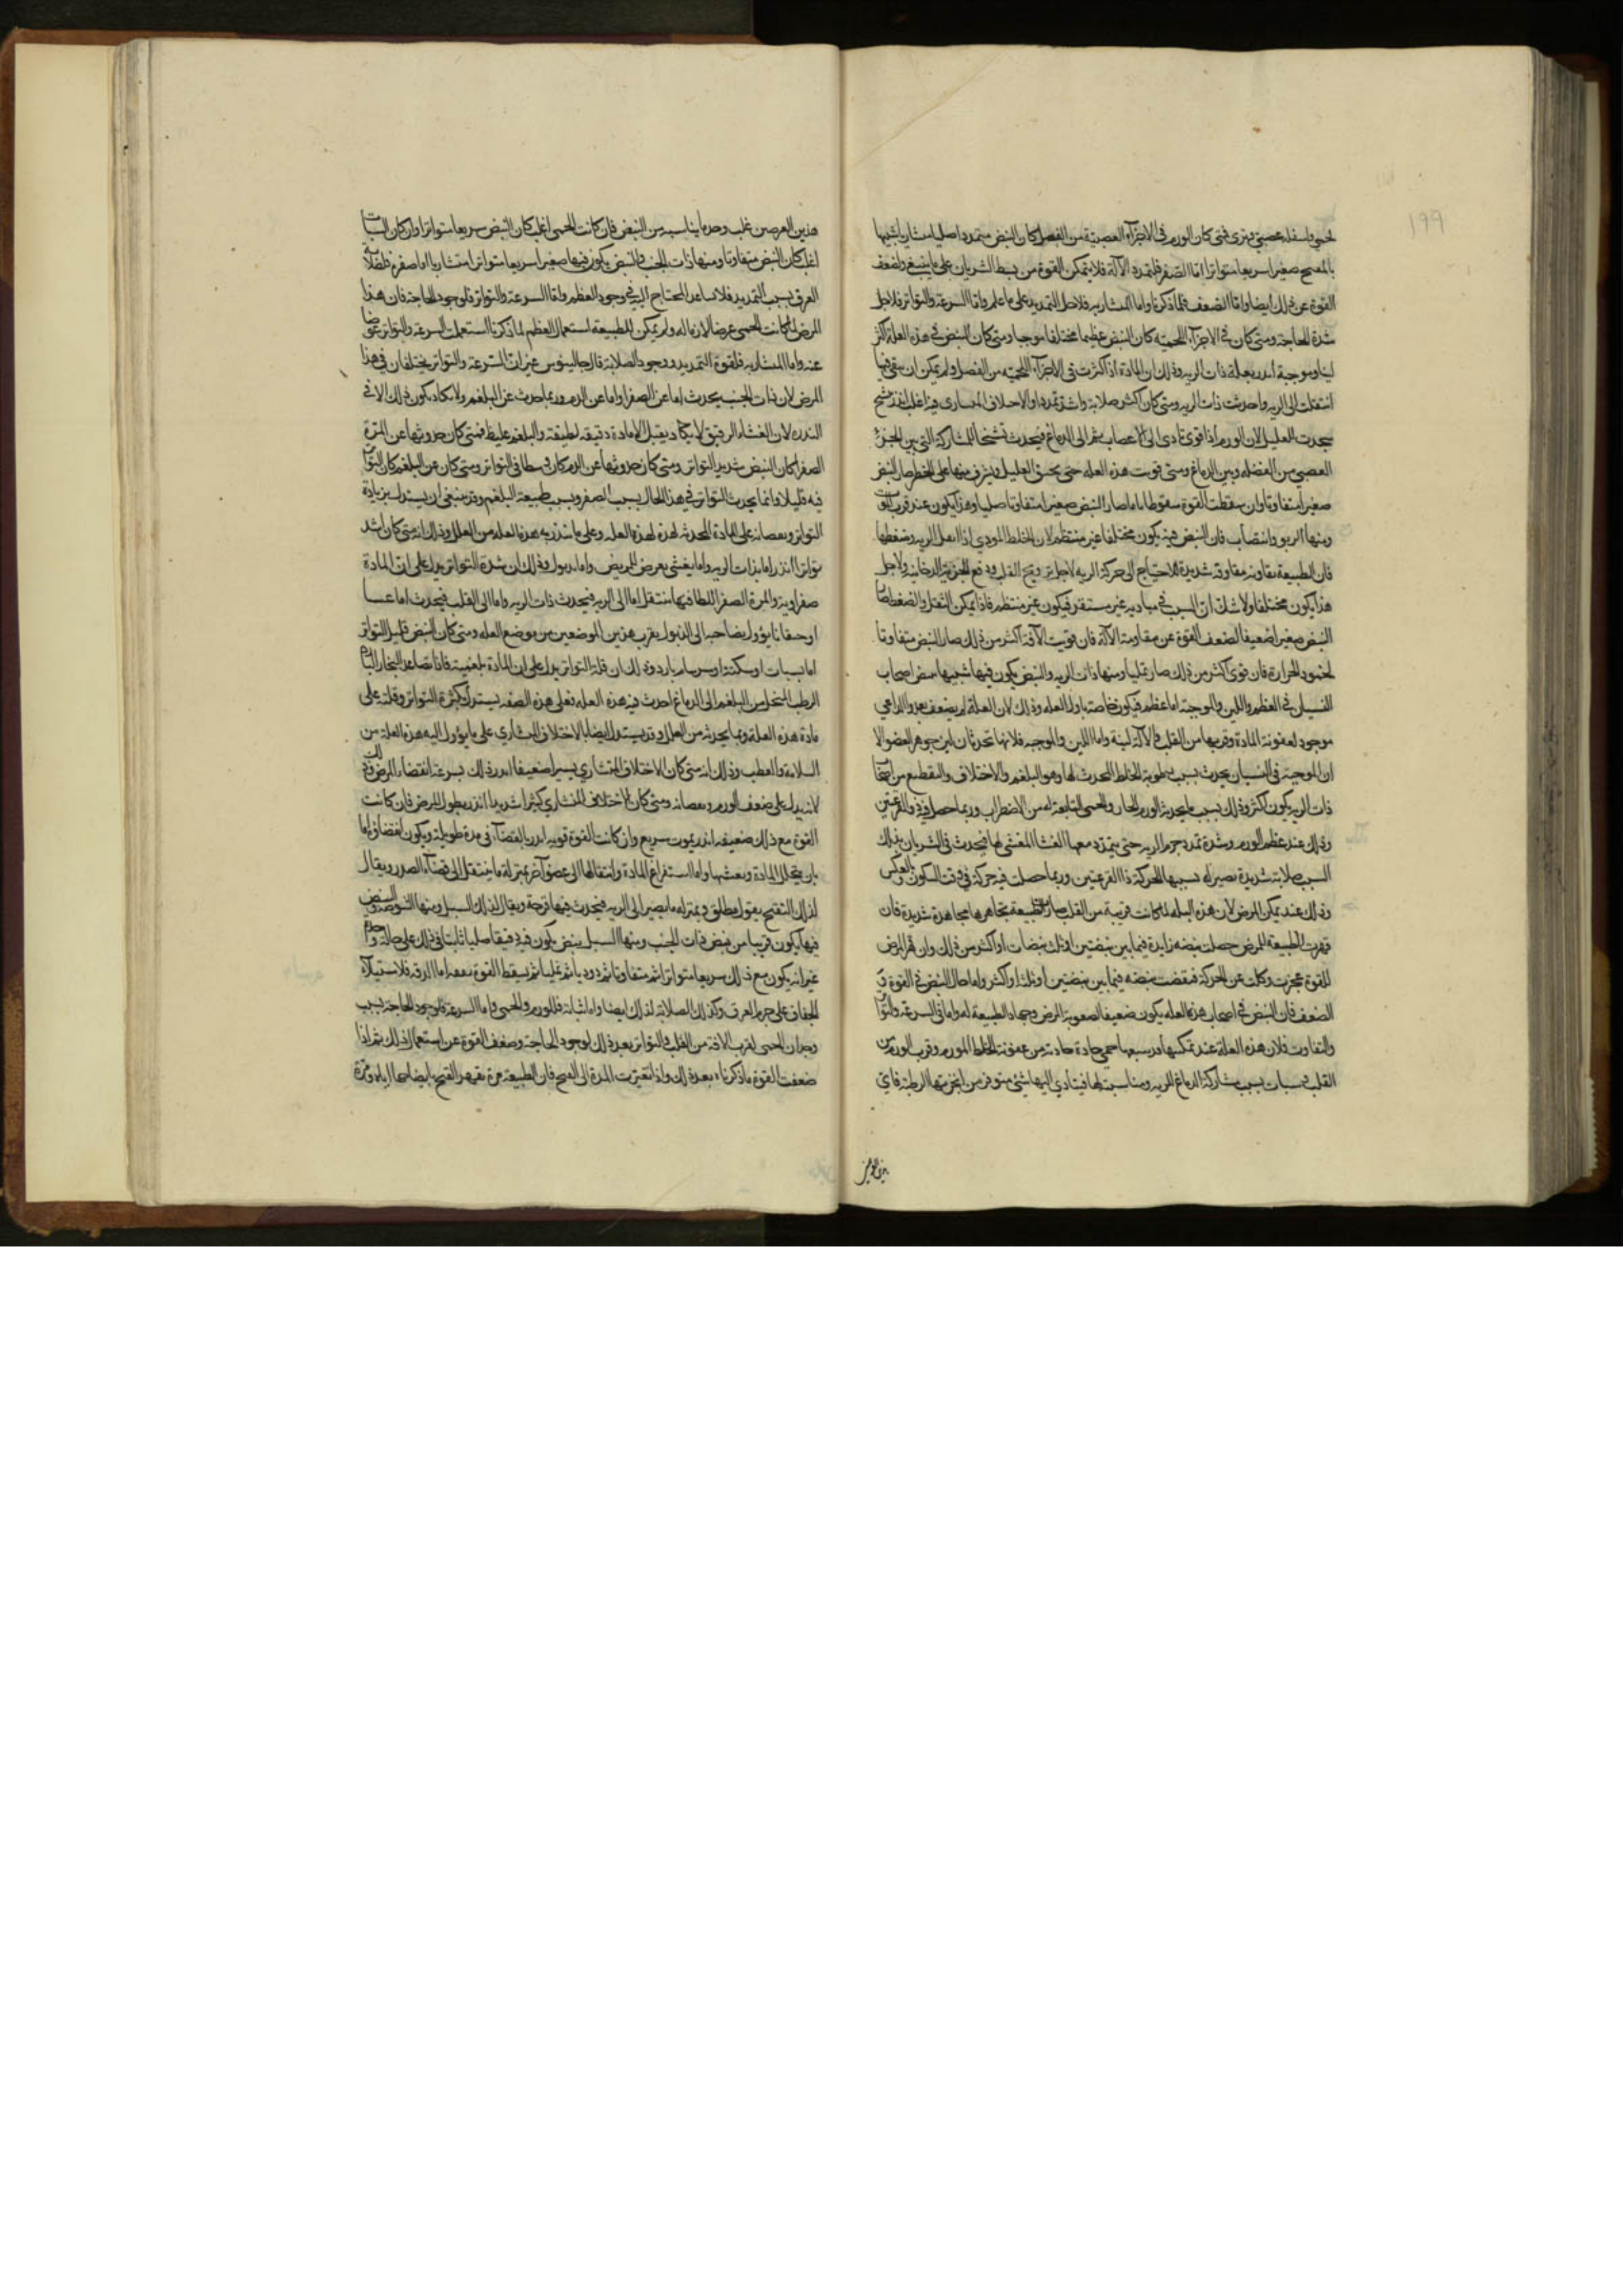 ١٩٩
لحمي واسفله عصبي وتري فمتى كان الورم في الاجزاء العصبية من الفصل كان النبض متمددا صلبا منشاريا شبيها
صغيرا سريعا متواترا اما الصغر فلتمدد الآلة فلا يتمكن القوة من بسط الشريان على ما ينبغي ولضعف
القوة عن ذلك ايضا واما الضعف فلما ذكرنا واما المنشاريه فلاجل التمديد على ما علم واما السرعة والتواتر فلاجل
شدة الحاجة ومتى كان في الاجزاء اللحميه كان النبض عظيما مختلفا موجيا ومتى كان النبض في هذه العلة اكثر
لينا وموجية انذر بعلة ذات الريه وذلك ان المادة اذا كثرت في الاجزاء اللحميه من الفصل ولم يمكن ان يبقى فيها
انتقلت الى الريه واحدثت ذات الريه ومتى كان اكثر صلابة واشد تمددا والاختلاف المنشاري فيه اغلب انذر بتشنج
يحدث العليل لان الورم اذا قوي تادى الى الاعصاب ثم الى الدماغ فيحدث تشنجا للمشاركة التي بين الجزء
العصبي من العضله وبين الدماغ ومتى قويت هذه العله حتى يختنق العليل ويشرف منها على الخطر صار النبض
صغيرا متفاوتا وان سقطت القوة سقوطا تاما صار النبض صغيرا متفاوتا صلبا وهذا يكون عند قرب الموت
ومنها الربو وانتصاب فان النبض فيه يكون مختلفا غير منتظم لان الخلط المودي اذا الريه وضغطها
فان الطبيعة تقاومه مقاومة شديدة للاحتياج الى حركة الريه لاجل ترويح القلب ودفع الابخرة الدخانيه ولاجل
هذا يكون مختلفا ولا شك ان السبب في مباديه غير مستقر فيكون غير منتظم فاذا تمكن الثقل والضغط صار
النبض صغيرا ضعيفا لضعف القوة عن مقاومة الآلة فان قويت الآفة اكثر من ذلك صار النبض متفاوتا
لخمود الحرارة فان قوى اكثر من ذلك صار نمليا ومنها ذات الريه والنبض يكون فيها شبيها بنبض اصحاب
النسيان في العظم واللين والموجية اما عظمه فيكون خاصة باول العله وذلك لان العلة لم يضعف بعد والداعي
موجود لعفونة المادة وقربها من القلب والآلة لينة واما اللين والموجيه فلانها تحدث ان لين جوهر العضو الا
ان الموجية في النسيان يحدث بسبب رطوبة الخلط المحدث لها وهو البلغم والاختلاف والتقطع من اصحاب
ذات الريه يكون اكثر وذلك بسبب ما يحدثه الورم الحار والحمى التابعة له من الاضطراب وربما حصل فيه ذو القرعتين
وذلك عند عظم الورم وشدة تمدد جرم الريه حتى يتمدد معها الغشا المغشي لها فيحدث في الشريان بذلك
السبب صلابة شديدة يصير له بسببها الحركة ذا القرعتين وربما حصلت فيه حركة في وقت السكون وبالعكس
وذلك عند تمكن المرض لان هذه العله لما كانت قريبة من القلب صار الطبيعة تجاهرها مجاهدة شديدة فان
قهرت الطبيعة المرض حصلت نبضه زايدة فيما بين نبضتين او ثلث نبضات او اكثر من ذلك وان قهر المرض
للقوة عجزت وكلت عن الحركة فنقصت نبضه فيما بين نبضتين او ثلث او اكثر واما حال النبض في القوة و
الضعف فان النبض في اصحاب هذه العله يكون ضعيفا لصعوبة المرض وجهاد الطبيعة له واما في السرعة والتواتر
والتفاوت فلان هذه العلة عند تمكنها قد يتبعها حمى حادة حادثة من عفونة الخلط المورم وقرب الورم من
القلب سبات بسبب مشاركة الدماغ للريه ومناسبتها لها فيتادي اليها شئ متوفر من ابخرتها الرطبة فاي
هذين العرضين غلب وحده ما يناسبه من النبض فان كانت الحمى اغلب كان النبض سريعا متواترا وان كان السبات
اغلب كان النبض متفاوتا ومنها ذات الجنب والنبض يكون فيها صغيرا سريعا متواترا منشاريا اما صغره فلصلابة
العرق بسبب التمديد فلا يساعد المحتاج اليه في وجود العظم واما السرعة والتواتر فلوجود الحاجة فان هذا
المرض لما كانت الحمى عرضا لازما له ولم يمكن الطبيعة استعمال العظم لما ذكرنا استعملت السرعة والتواتر عوضا
عنه واما المنشاريه فلقوة التمديد ووجود الصلابة قال جالينوس غير ان السرعة والتواتر يختلفان في هذا
المرض لان ذات الجنب يحدث اما عن الصفرا واما عن الدم وربما حدث عن البلغم ولا يكاد يكون ذلك الا في
الندره لان الغشاء الرقيق لا يكاد يقبل الا مادة رقيقه لطيفة والبلغم غليظ فمتى كان حدوثها عن المرة
الصفرا كان النبض شديد التواتر ومتى كان حدوثها عن الدم كان وسطا في التواتر ومتى كان عن البلغم كان التواتر
فيه قليلا وانما يحدث التواتر في هذا الحال بسبب الصغر وبسبب طبيعة البلغم وقد ينبغي ان يستدل بزيادة
التواتر ونقصانه على المادة المحدثه لهذه العله وعلى ما تنذر به هذه العله من العلل وذلك انه متى كان اشد
تواترا انذر اما بذات الريه واما بغشي يعرض للمريض واما بذبول وذلك ان شدة التواتر يدل على ان المادة
صفراويه والمرة الصفرا للطافتها ينتقل اما الى الريه فيحدث ذات الريه واما الى القلب فيحدث اما غشيا
او خفقانا يؤول بصاحبه الى الذبول بقرب هذين الموضعين من موضع العله ومتى كان النبض قليل التواتر
اما بسبات او سكتة او سرسام بارد وذلك ان قلة التواتر يدل على ان المادة بلغمية فاذا تصاعد البخار البارد
الرطب المتحلل من البلغم الى الدماغ احدث فيه هذه العله فعلى هذه الصفه يستدل بكثرة التواتر وقلته على
مادة هذه العلة وبما يحدثه من العلل وقد يستدل ايضا بالاختلاف المنشاري على ما يؤول اليه هذه العلة من
السلامة والعطب وذلك انه متى كان الاختلاف المنشاري يسيرا ضعيفا انذر ذلك بسرعة انقضاء المرض وذلك
لانه يدل على ضعف الورم ونقصانه ومتى كان الاختلاف المنشاري كثيرا شديدا انذر بطول المرض فان كانت
القوة مع ذلك ضعيفه انذر بموت سريع وان كانت القوة قويه انذر بانقضاء في مدة طويلة ويكون انقضاؤه اما
بان يتحلل المادة واما استفراغ المادة وانتقالها الى عضو آخر بمنزلة ما ينتقل الى فضاء الصدر ويقال
لذلك التقيح بقول مطلق وبمنزله ما يصير الى الريه فيحدث فيها قرحة ويقال لذلك السل ومنها
فيها يكون قريبا من نبض ذات الجنب ومنها السل ينبض يكون فيه دقيقا صلبا ثابتا في ذلك على حالة واحدة
غير انه يكون مع ذلك سريعا متواترا ثم متفاوتا ثم دوديا ثم نمليا ثم يسقط القوة بعده اما الدقه فلاستيلاء
الجفاف على جرم العرق وكذلك الصلابة لذلك ايضا واما ثباته فللورم والحمى واما السرعة فلوجود الحاجة بسبب
وجدان الحمى لقرب الآفة من القلب والتواتر بعد ذلك لوجود الحاجة وضعف القوة عن استعمال ذلك ثم اذا
ضعفت القوة ما ذكرناه بعد ذلك واذا تغيرت المدة الى القيح فان الطبيعة مرة تقهر القيح بانضاجها اياه ومرة